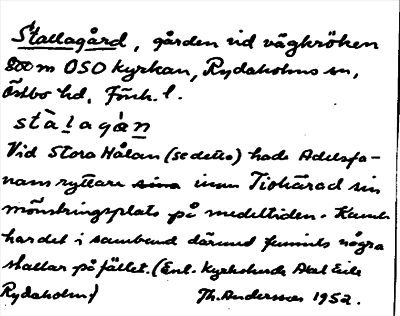 Stallagård, gården vid vägkröken
800 m OSO kyrkan, Rydaholms sn,
Östbo hd, Jönk. l.
stàlagán
Vid Stora Hålan (se detta) hade Adelsfa-
nans ryttare sina inom Tiohärad sin
mönstringsplats på medeltiden. Kanske
har det i samband därmed funnits några
stallar på fället. (Enl. Kyrkoherde Axel
Rydaholm) Th. Andersson 1952.